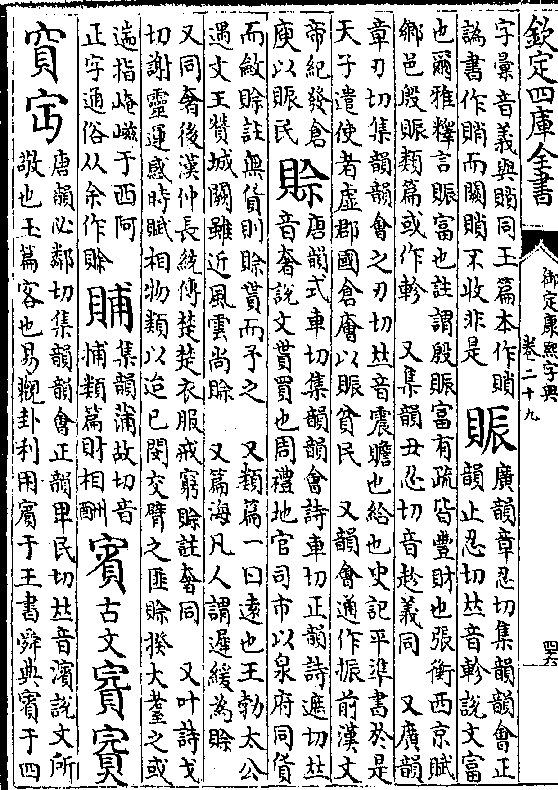 欽定四庫全書
御定康熙字典
卷二十九
字彙音義與䝼同玉篇本作䝼
譌書作䝼而闕䝼不收非是
賑
廣韻章忍切集韻韻會正
韻止忍切𠀤音軫說文富
也爾雅釋言賑富也註謂殷賑富有疏皆豐財也張衡西京賦
鄉邑殷賑類篇或作䡅　又集韻丑忍切音辴義同　又廣韻
章刃切集韻韻會之刃切𠀤音震贍也給也史記平準書於是
天子遣使者虛郡國倉廥以賑貧民　又韻會通作振前漢文
帝紀發倉
庾以賑民
賒
唐韻式車切集韻韻會詩車切正韻詩遮切𠀤
音奢說文貰買也周禮地官司市以泉府同貨
而斂賒註無貨則賒貰而予之　又類篇一曰遠也王勃太公
遇文王贊城闕雖近風雲尚賒　又篇海凡人謂遲緩為賒
又同奢後漢仲長統傳楚楚衣服戒窮賒註奢同　又叶詩戈
切謝靈運感時賦相物類以迨已閔交臂之匪賒揆大耋之或
遄指崦嵫于西阿
正字通俗从余作賖
䝵
集韻蒲故切音
捕類篇財相酬
賓
古文
唐韻必鄰切集韻韻會正韻卑民切𠀤音濱說文所
敬也玉篇客也易觀卦利用賓于王書舜典賓于四